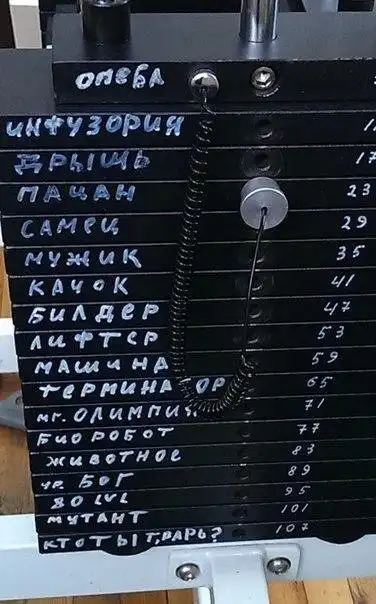 ОМЕБА
ИНФУЗОРИЯ
ДРЫЩЬ 17
ПАЦАН 23
САМЕЦ 29
МУЖИК 35
КАЧОК 41
БИЛДЕР 47
ЛИФТЕР 53
МАШИНА 59
ТЕРМИНАТОР 65
МГ. ОЛИМПИЯ 71
БИОРОБОТ 77
ЖИВОТНОЕ 83
УР. БОГ 89
80 LVL 95
МУТАНТ 101
КТО ТЫ Т,ВАРЬ? 107